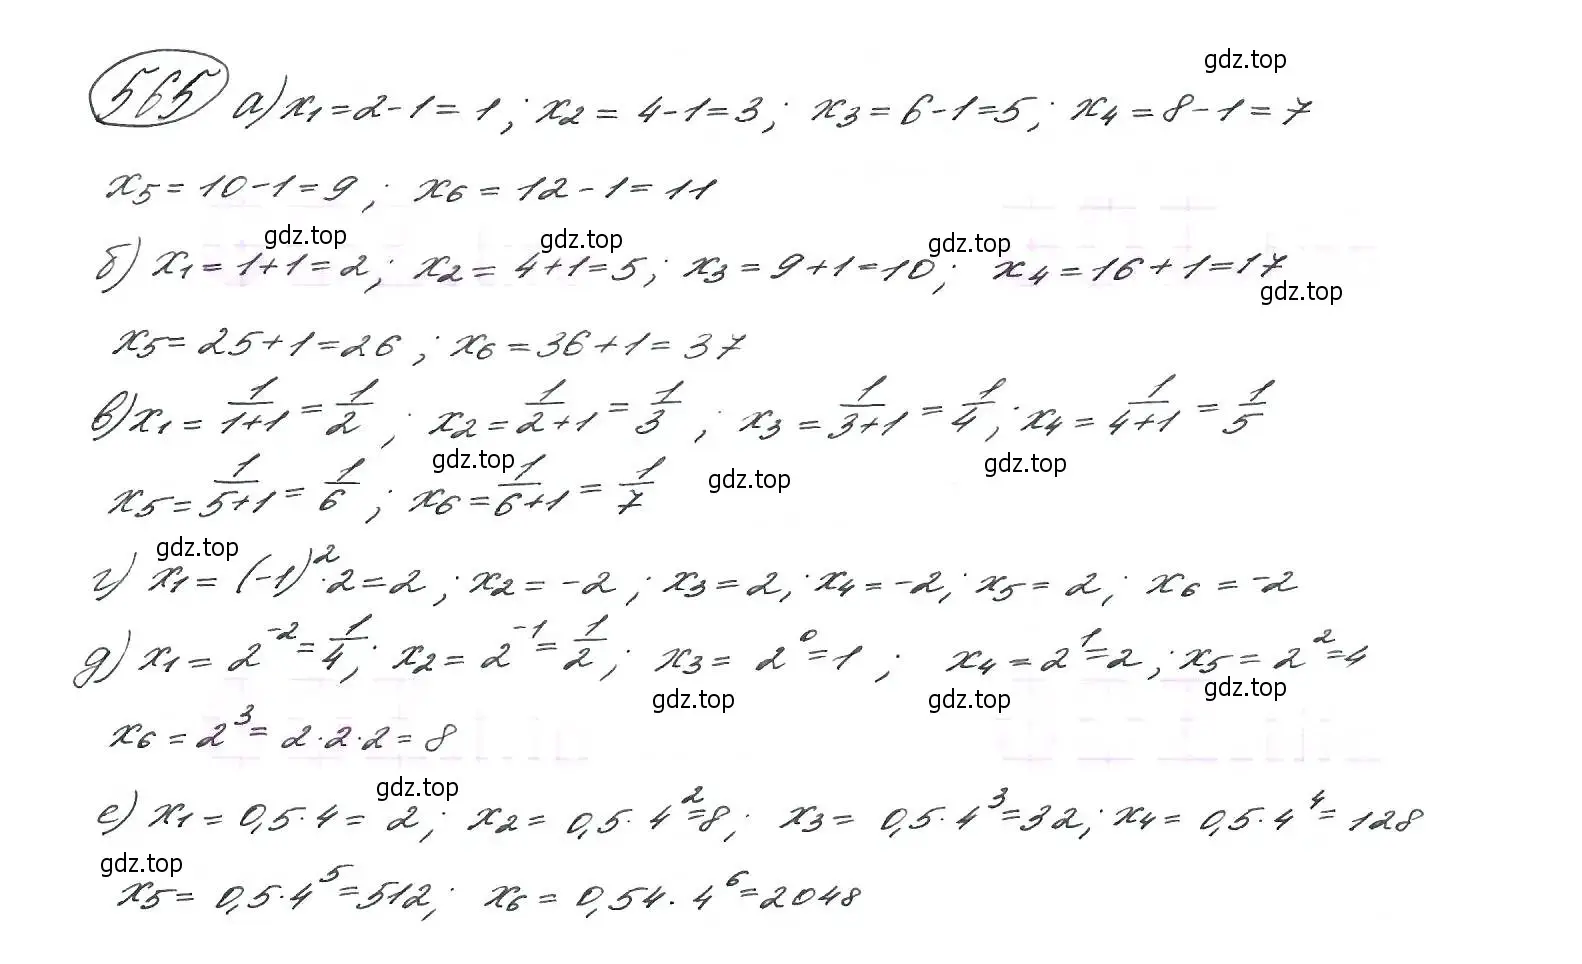 gdz.top
565 а) x₁ = 2 - 1 = 1 ; x₂ = 4 - 1 = 3 ; x₃ = 6 - 1 = 5 ; x₄ = 8 - 1 = 7
x₅ = 10 - 1 = 9 ; x₆ = 12 - 1 = 11
gdz.top gdz.top gdz.top
б) x₁ = 1 + 1 = 2 ; x₂ = 4 + 1 = 5 ; x₃ = 9 + 1 = 10 ; x₄ = 16 + 1 = 17
gdz.top
x₅ = 25 + 1 = 26 ; x₆ = 36 + 1 = 37
в) x₁ = 1/(1+1) = 1/2 ; x₂ = 1/(2+1) = 1/3 ; x₃ = 1/(3+1) = 1/4 ; x₄ = 1/(4+1) = 1/5
gdz.top gdz.top gdz.top
x₅ = 1/(5+1) = 1/6 ; x₆ = 1/(6+1) = 1/7
gdz.top
г) x₁ = (-1)² · 2 = 2 ; x₂ = -2 ; x₃ = 2 ; x₄ = -2 ; x₅ = 2 ; x₆ = -2
д) x₁ = 2⁻² = 1/4 ; x₂ = 2⁻¹ = 1/2 ; x₃ = 2⁰ = 1 ; x₄ = 2¹ = 2 ; x₅ = 2² = 4
gdz.top gdz.top gdz.top
x₆ = 2³ = 2 · 2 · 2 = 8
gdz.top
е) x₁ = 0,5 · 4 = 2 ; x₂ = 0,5 · 4² = 8 ; x₃ = 0,5 · 4³ = 32 ; x₄ = 0,5 · 4⁴ = 128
gdz.top
x₅ = 0,5 · 4⁵ = 512 ; x₆ = 0,54 · 4⁶ = 2048